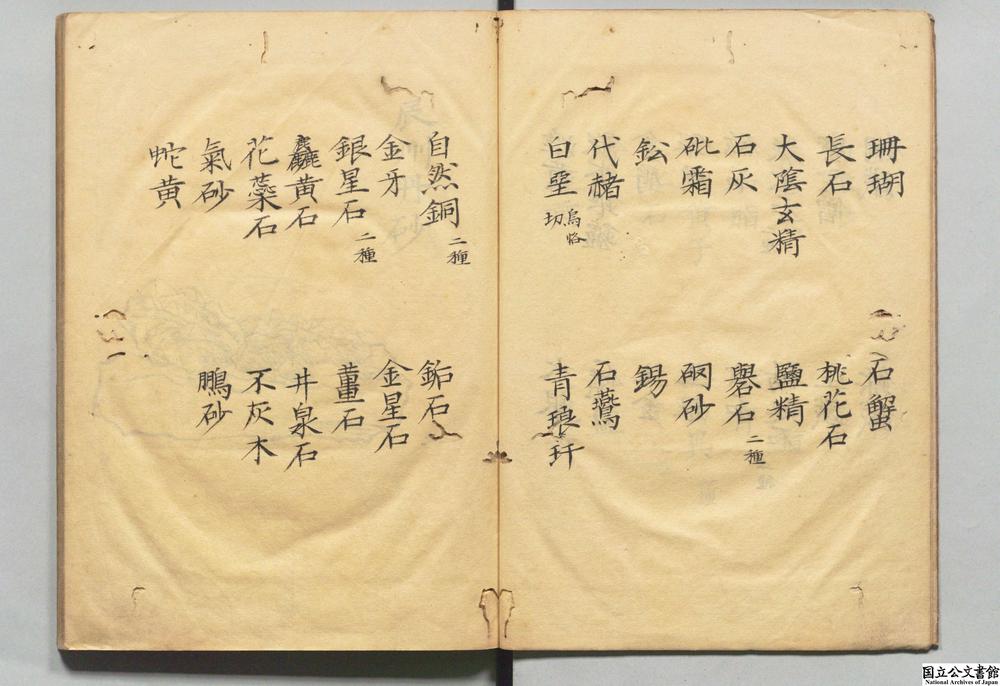 珊瑚 石蟹
長石 桃花石
大陰玄精 鹽精
石灰 礜石 二種
砒霜 硇砂
鈆 錫
代赭 石鷰
白堊 烏恪切 青琅玕
自然銅 二種 鉐石
金牙 金星石
銀星石 二種 菫石
麤黄石 井泉石
花蘂石 不灰木
氣砂 鵬砂
蛇黄
国立公文書館
National Archives of Japan